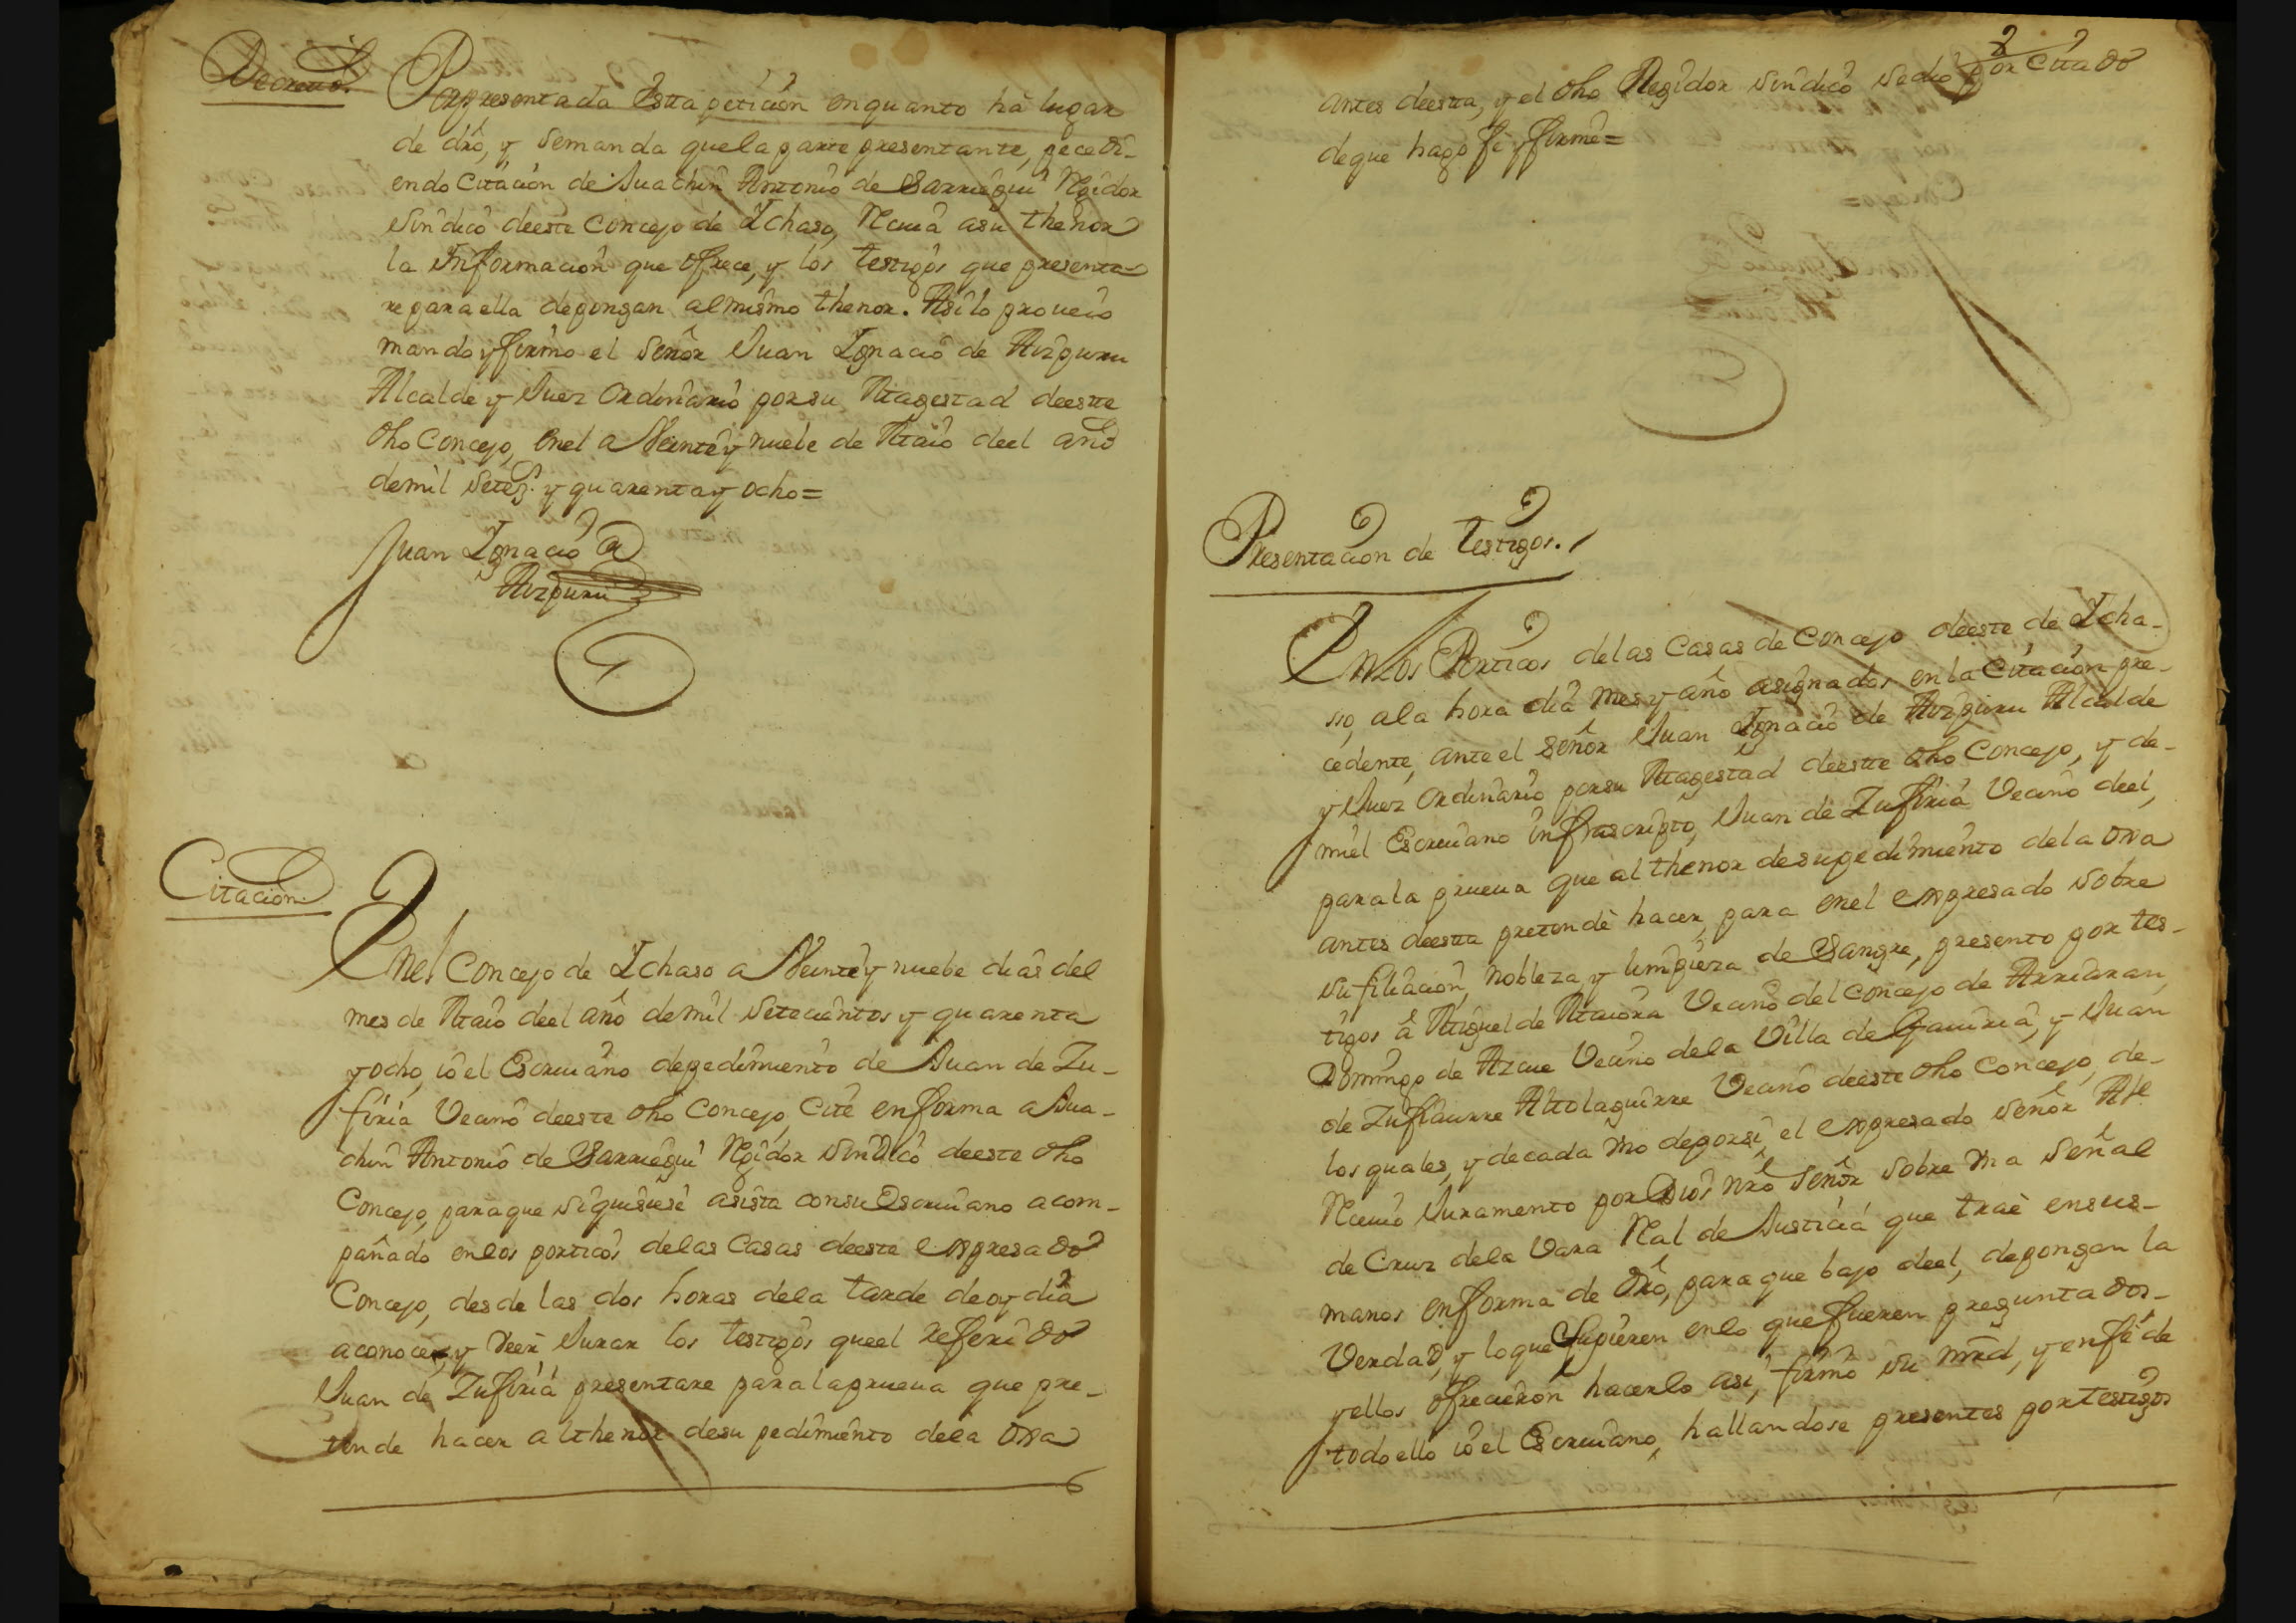 Decreto.
Por presentada estta petición en quanto hà lugar
de dró, y se manda que la parte presentante, precedi-
endo Citación de Juachin Antonio de Sarriegui Regidor
Sindico de este Concejo de Ichaso, Reciuá a su thenor
la Información que ofrece, y los testigos que presenta-
re para ella depongan al mismo thenor. Asi lo proueio
mando y firmo el Señor Juan Ignacio de Aizpuru
Alcalde y Juez Ordinario por su Magestad de estte
dho Concejo, en el a Veinte y nuebe de Maio de el año
de mil Setez.s y quarenta y ocho=
Juan Ignacio de
Aizpuru
Citación.
En el Concejo de Ichaso a Veinte y nuebe dias del
mes de Maio de el año de mil Setecientos y quarenta
y ocho, io el Escriuano de pedimiento de Juan de Zu-
firia Vecino de este dho Concejo, Cité en forma a Jua-
chin Antonio de Sarriegui Regidor Sindico de este dho
Concejo, para que si quisiese asista con su Escriuano acom-
pañado en los porticos de las Casas de este expresado
Concejo, desde las dos horas de la tarde de oy dia
a conocer, y veer Jurar los testigos que el referido
Juan de Zufiria presentare para la prueua que pre-
tende hacer al thenor de su pedimiento de la ora
2
antes de esta, y el dho Regidor Sindico se dio por Citado
de que hago fe y firmé=
Presentacion de Testigos.
En los Porticos de las Casas de Concejo de este de Icha-
so, a la hora dia mes y año asignados en la Citación pre-
cedente, ante el Señor Juan Ignacio de Aizpuru Alcalde
y Juez Ordinario por su Magestad de estte dho Concejo, y de
mi el Escriuano infrascripto, Juan de Zufiria Vecino de el,
para la prueua que al thenor de su pedimiento de la ora
antes de esta pretende hacer, para en el expresado sobre
su filiación, nobleza, y limpieza de Sangre, presento por tes-
tigos â Miguel de Maiora Vecino del Concejo de Arriaran,
Domingo de Azcue Vecino de la Villa de Gauiria, y Juan
de Zufiaurre Altolaguirre Vecino de este dho Concejo, de
los quales, y de cada vno de por si, el expresado Señor Alc.e
Reciuio Juramento por Dios nró Señor sobre vna Señal
de Cruz de la Vara Real de Justicia que trae en sus
manos en forma de dró, para que bajo de el, depongan la
Verdad, y lo que supieren en lo que fueren preguntados-
y ellos ofrecieron hacerlo asi, firmó su mrd, y en fé de
todo ello io el Escriuano, hallandose presentes por testigos